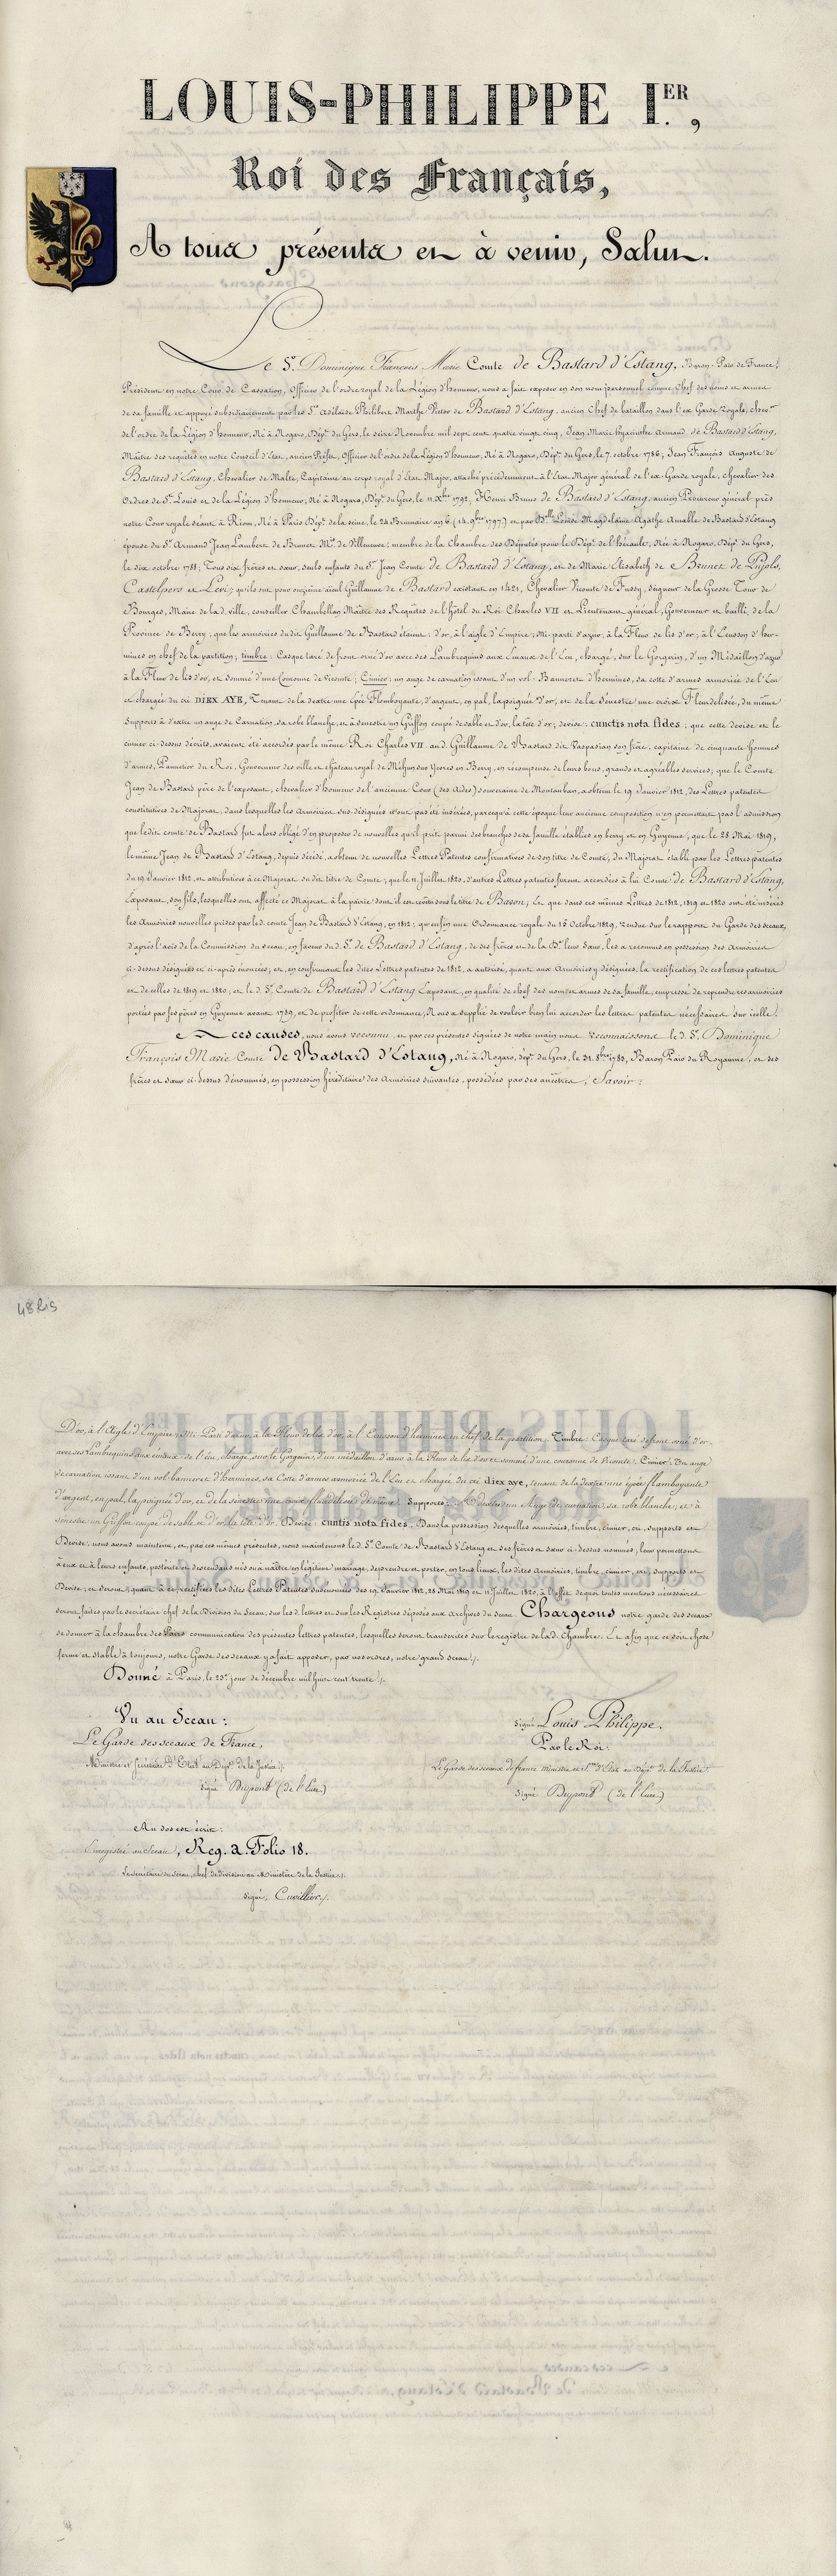 LOUIS-PHILIPPE I.ER,
Roi des Français,
A tous présents et à venir, Salut.
Le Sr. Dominique François Marie Comte de Bastard d'Estang, Baron-Pair de France,
Président en notre Cour de Cassation, Officier de l'ordre royal de la Légion d'honneur, nous a fait exposer en son nom personnel comme Chef des noms et armes
de sa famille et appuyé subsidiairement par les Srs. Adélaïde Philibert Marthe Victor de Bastard d'Estang, ancien Chef de bataillon dans l'ex Garde Royale, cher.
de l'ordre de la Légion d'honneur, Né à Nogaro, Dépt. du Gers, le seize Novembre mil sept cent quatre vingt cinq, Jean Marie Hyacinthe Armand de Bastard d'Estang,
Maître des requêtes en notre Conseil d'Etat, ancien Préfet, Officier de l'ordre de la Légion d'honneur, Né à Nogaro, Dépt. du Gers, le 7. octobre 1786; Jean François Auguste de
Bastard d'Estang, Chevalier de Malte, Capitaine au corps royal d'Etat Major, attaché précédemment à l'Etat Major général de l'ex-Garde royale, chevalier des
Ordres de St. Louis et de la Légion d'honneur, Né à Nogaro, Dépt. du Gers, le 11. Xbre 1792, Henri Bruno de Bastard d'Estang, ancien Procureur général près
notre Cour royale séant à Riom, Né à Paris Dépt. de la seine, le 24 Brumaire an 6 (14. 9bre 1797.) et par Delle Louise Magdelaine Agathe Amable de Bastard d'Estang
épouse du Sr. Armand Jean Lambert de Brunet Mis. de Villeneuve; membre de la Chambre des Députés pour le Dépt. de l'hérault, Née à Nogaro, Dépt. du Gers,
le dix octobre 1788; Tous six frères et sœur, seuls enfants du Sr. Jean Comte de Bastard d'Estang, et de Marie Elisabeth de Brunet de Pujols,
Castelpers et Levi; qu'ils ont pour onzième aïeul Guillaume de Bastard existant en 1421, Chevalier Vicomte de Fussy, seigneur de la Grosse Tour de
Bourges, Maire de la d. ville, conseiller Chambellan Maître des Requêtes de l'Hôtel du Roi Charles VII et Lieutenant général, Gouverneur et bailli de la
Province de Berry, que les armoiries du dit Guillaume de Bastard étaient: d'or, à l'aigle d'Empire; Mi-parti d'azur, à la Fleur de lis d'or; à l'Ecusson d'her-
mines en chef de la partition; timbre: Casque taré de front orné d'or avec des Lambrequins aux Emaux de l'Ecu, chargé, sur le Gorgerin, d'un Médaillon d'azur
à la Fleur de lis d'or, et sommé d'une Couronne de Vicomte; Cimier: un ange de carnation issant d'un vol-Banneret d'hermines, sa cotte d'armes armoriée de l'Ecu
et chargée du cri DIEX AYE, Tenant de la dextre une Epée Flamboyante, d'argent, en pal, la poignée d'or, et de la Senestre une croix Fleurdelisée, du même
Supports à d'extre un ange de Carnation, sa robe blanche, et à senestre un Griffon coupé de sable et d'or, la tête d'or; devise: cunctis nota fides; que cette devise et le
cimier ci-dessus décrits, avaient été accordés par le même Roi Charles VII. au d. Guillaume de Bastard et à Vaspasian son frère, capitaine de cinquante hommes
d'armes, Pannetier du Roi, Gouverneur des ville et château royal de Méhun sur Yèvres en Berry, en récompense de leurs bons, grands et agréables services; que le Comte
Jean de Bastard père de l'exposant, chevalier d'honneur de l'ancienne Cour (des Aides) souveraine de Montauban, a obtenu le 19 Janvier 1812, des Lettres patentes
constitutives de Majorat, dans lesquelles les Armoiries sus désignées n'ont pas été insérées, parcequ'à cette époque leur ancienne composition n'en permettait pas l'admission
que le dit comte de Bastard fut alors obligé d'en proposer de nouvelles qu'il prit parmi des branches de sa famille établies en berry et en Guyenne; que le 28 Mai 1819,
le même Jean de Bastard d'Estang, depuis décédé, a obtenu de nouvelles Lettres Patentes confirmatives de son titre de Comte, du Majorat établi par les Lettres patentes
du 19 Janvier 1812, et attributives à ce Majorat du dit titre de Comte; que le 11. Juillet 1820, d'autres Lettres patentes furent accordées à lui Comte de Bastard d'Estang,
Exposant, son fils, lesquelles ont affecté ce Majorat à la pairie dont il est revêtu sous le titre de Baron; Et que dans ces mêmes Lettres de 1812, 1819 et 1820 ont été insérées
les Armoiries nouvelles prises par le d. comte Jean de Bastard d'Estang, en 1812; qu'enfin une Ordonnance royale du 15 Octobre 1829, rendue sur le rapport du Garde des sceaux,
d'après l'avis de la Commission du sceau, en faveur du d. Sr. de Bastard d'Estang, de ses frères et de la De. leur Sœur, les a reconnus en possession des Armoiries
ci-dessus désignées et ci-après énoncées; et, en confirmant les dites Lettres patentes de 1812, a autorisé, quant aux Armoiries y désignées, la rectification de ces lettres patentes
et de celles de 1819 et 1820; et le d. Sr. Comte de Bastard d'Estang Exposant, en qualité de chef des nom et armes de sa famille, empressé de reprendre ces armoiries
portées par ses pères en Guyenne avant 1789, et de profiter de cette ordonnance, Nous a supplié de vouloir bien lui accorder les lettres patentes nécessaires sur icelle.
A ces causes, nous avons reconnu, et par ces présentes signées de notre main, nous reconnaissons le d. Sr. Dominique
François Marie Comte de Bastard d'Estang, Né à Nogaro, dépt. du Gers, le 31. 8bre 1783, Baron Pair du Royaume, et ses
frères et sœur ci-dessus dénommés, en possession héréditaire des Armoiries suivantes, possédées par ses ancêtres, Savoir:
48 bis
D'or, à l'Aigle d'Empire; Mi-Parti d'azur, à la Fleur de lis d'or, à l'Ecusson d'hermines en chef de la partition. Timbre: Casque taré de front orné d'or,
avec ses Lambrequins aux émaux de l'écu, chargé, sur le Gorgerin, d'un médaillon d'azur à la Fleur de lis d'or et sommé d'une couronne de Vicomte; Cimier: Un ange
de carnation issant d'un vol-banneret d'hermines, sa Cotte d'armes armoriée de l'Ecu et chargée du cri diex aye, tenant de la dextre une épée flamboyante
d'argent, en pal, la poignée d'or, et de la sénestre une croix fleurdelisée du même. Supports: A dextre un Ange de carnation, sa robe blanche; et à
sénestre un Griffon coupé de sable et d'or, la tête d'or. Devise: cunctis nota fides, Dans la possession desquelles armoiries, timbre, cimier, cri, supports et
Devise, nous avons maintenu, et, par ces mêmes présentes, nous maintenons le d. Sr. Comte de Bastard d'Estang et ses frères et sœur ci-dessus nommés, leur permettons
à eux et à leurs enfants, postérité et descendants nés ou à naître en légitime mariage, de prendre et porter, en tous lieux, les dites Armoiries, timbre, cimier, cri, supports et
Devise; et seront, quant à ce, rectifiées les dites Lettres Patentes susénoncées des 19. Janvier 1812, 28 Mai 1819 et 11 Juillet 1820, à l'effet de quoi toutes mentions nécessaires
seront faites par le secrétaire chef de la Division du Sceau, sur les d. lettres et sur les Registres déposés aux Archives du Sceau. Chargeons notre garde des sceaux
de donner à la chambre des Pairs communication des présentes lettres patentes, lesquelles seront transcrites sur le registre de la d. Chambre. Et afin que ce soit chose
ferme et stable à toujours, notre Garde des sceaux y a fait apposer, par nos ordres, notre grand sceau./.
Donné à Paris, le 23e. jour de décembre mil huit cent trente./.
Vu au Sceau:
Le Garde des sceaux de France,
Ministre et secrétaire d'Etat au Dépt. de la Justice./.
Signé Dupont (de l'Eure)
signé Louis Philippe.
Par le Roi:
Le Garde des sceaux de france ministre et Sre. d'Etat au Dépt. de la Justice.
signé Dupont (de l'Eure)
Au dos est écrit:
Enregistré au Sceau, Reg. 2. Folio 18.
Le Secrétaire du Sceau, chef de Division au Ministère de la Justice./.
signé, Cuvillier./.